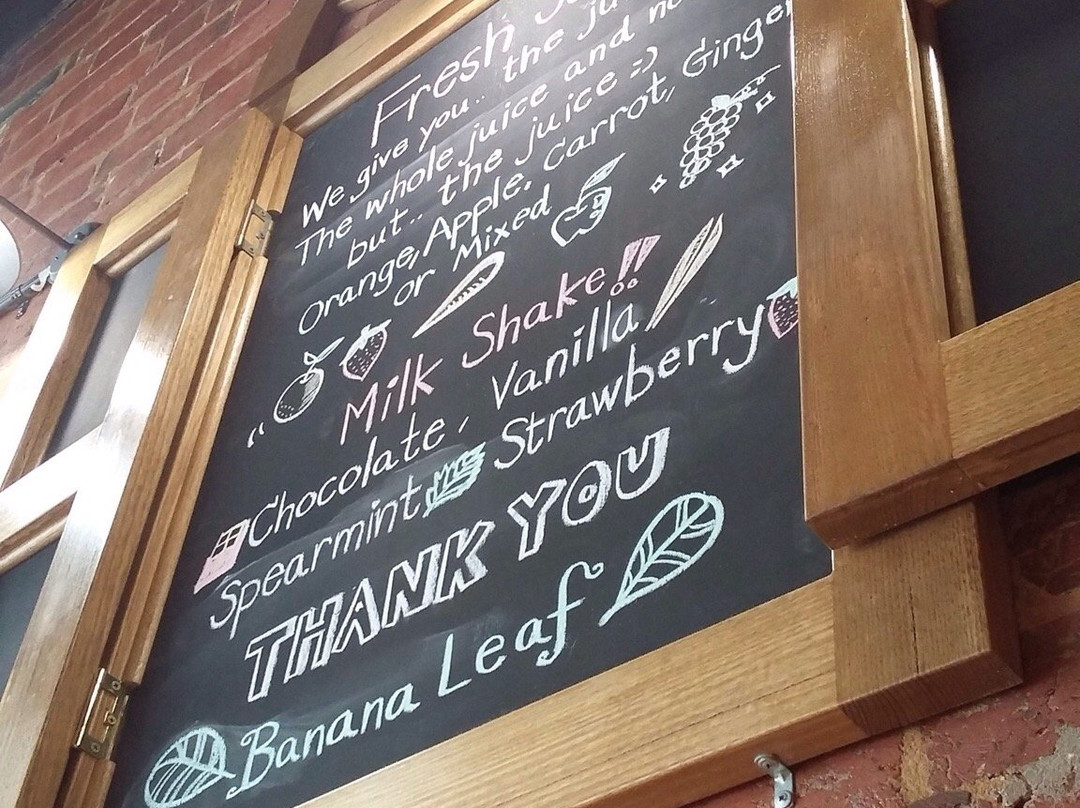 Fresh
We give you.. the ju
The whole juice and no
but.. the juice =)
Orange, Apple, Carrot, Ginger
or Mixed
Milk Shake!!
Chocolate, Vanilla
Spearmint Strawberry
THANK YOU
Banana Leaf